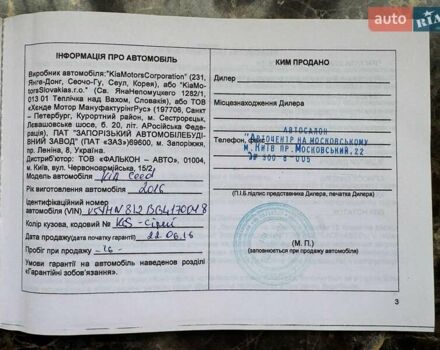 auto RIA
ІНФОРМАЦІЯ ПРО АВТОМОБІЛЬ
Виробник автомобіля:"KiaMotorsCorporation" (231,
Янге-Донг, Сеочо-Гу, Сеул, Корея), або "KiaMo-
torsSlovakias.r.o." (Св. ЯнаНепомуцкего 1282/1,
013 01 Теплічка над Вахом, Словакія), або ТОВ
«Хєнде Мотор МануфактурінгРус» (197706, Санкт
- Петербург, Курортний район, м. Сестрорецьк,
Левашовське шосе, б. 20, літ. АРосійська Федера-
ція), ПАТ "ЗАПОРІЗЬКИЙ АВТОМОБІЛЕБУДІ-
ВНИЙ ЗАВОД" (ПАТ «ЗАЗ»)69600, м. Запоріжжя,
пр.Леніна, 8, Україна.
Дистриб'ютор: ТОВ «ФАЛЬКОН – АВТО», 01004,
м. Київ, вул. Червоноармійська, 15/2
Модель автомобіля KIA Ceed
Рік виготовлення автомобіля 2016
Ідентифікаційний номер
автомобіля (VIN)
Колір кузова, кодовий №
Дата продажу(дата початку гарантії) 22.06.16
Пробіг при продажу
Умови гарантії на автомобіль наведено розділі
«Гарантійні зобов'язання».
КИМ ПРОДАНО
Дилер
Місцезнаходження Дилера
АВТОСАЛОН
Телефон, факс "Автоцентр на Московському"
м.Київ пр.Московський,22
(П.І.Б.підпис представника Дилера, печатка Дилера)
(М. П.)
(заповнюється при продажу автомобіля)
3